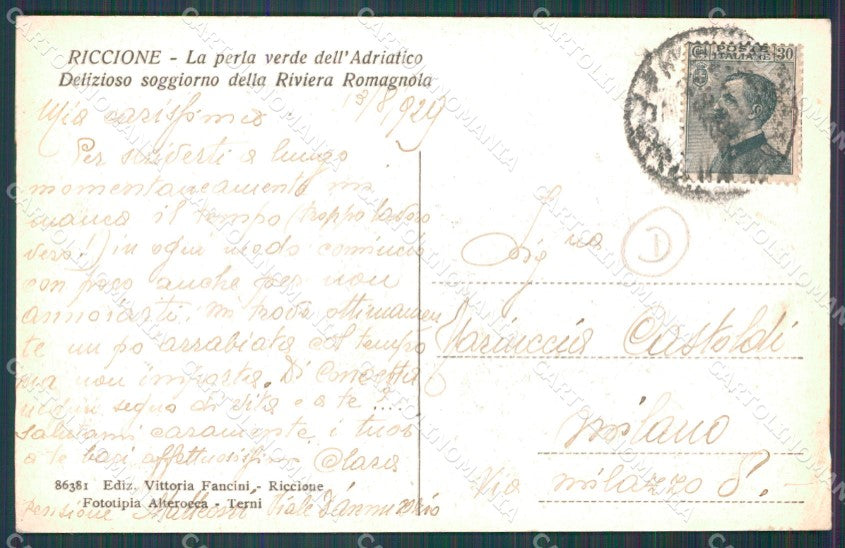 RICCIONE - La perla verde dell'Adriatico
Delizioso soggiorno della Riviera Romagnola
13/8/929
Mia carissima
Per scriverti a lungo
momentaneamente mi
manca il tempo (troppo lavoro
vero!) in ogni modo comincio
con poco anche per non
annoiarti. Mi trovo ottimamen
te un po arrabiata col tempo
ma non importa. Di Concetta
segno di vita e a te ?....
Salutami caramente i tuoi
a te baci affettuosissimi Clara
86381 Ediz. Vittoria Fancini - Riccione
Fototipia Alterocca - Terni
Pensione Viale D'Annunzio
POSTE
ITALIANE
30
Sig.na
D
Mariuccia Castoldi
Milano
Via Milazzo 8.
CARTOLINOMANIA